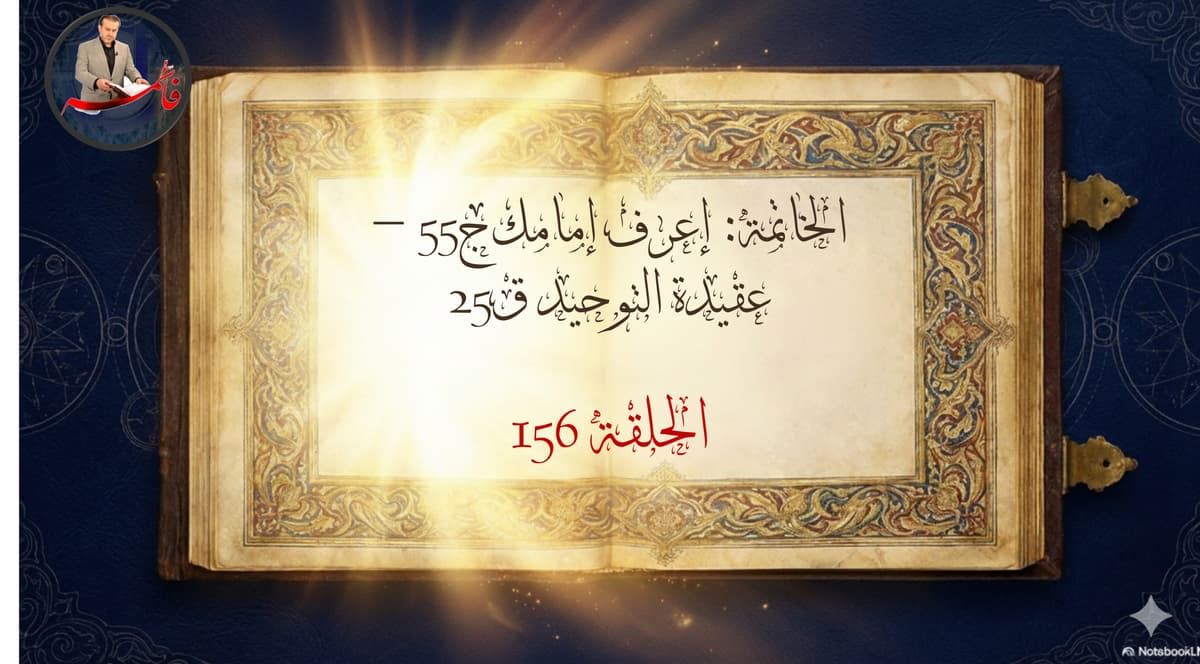 فاطمـة
الخاتمة: إعرف إمامك ج55 –
عقيدة التوحيد ق25
الحلقة 156
NotsbookL